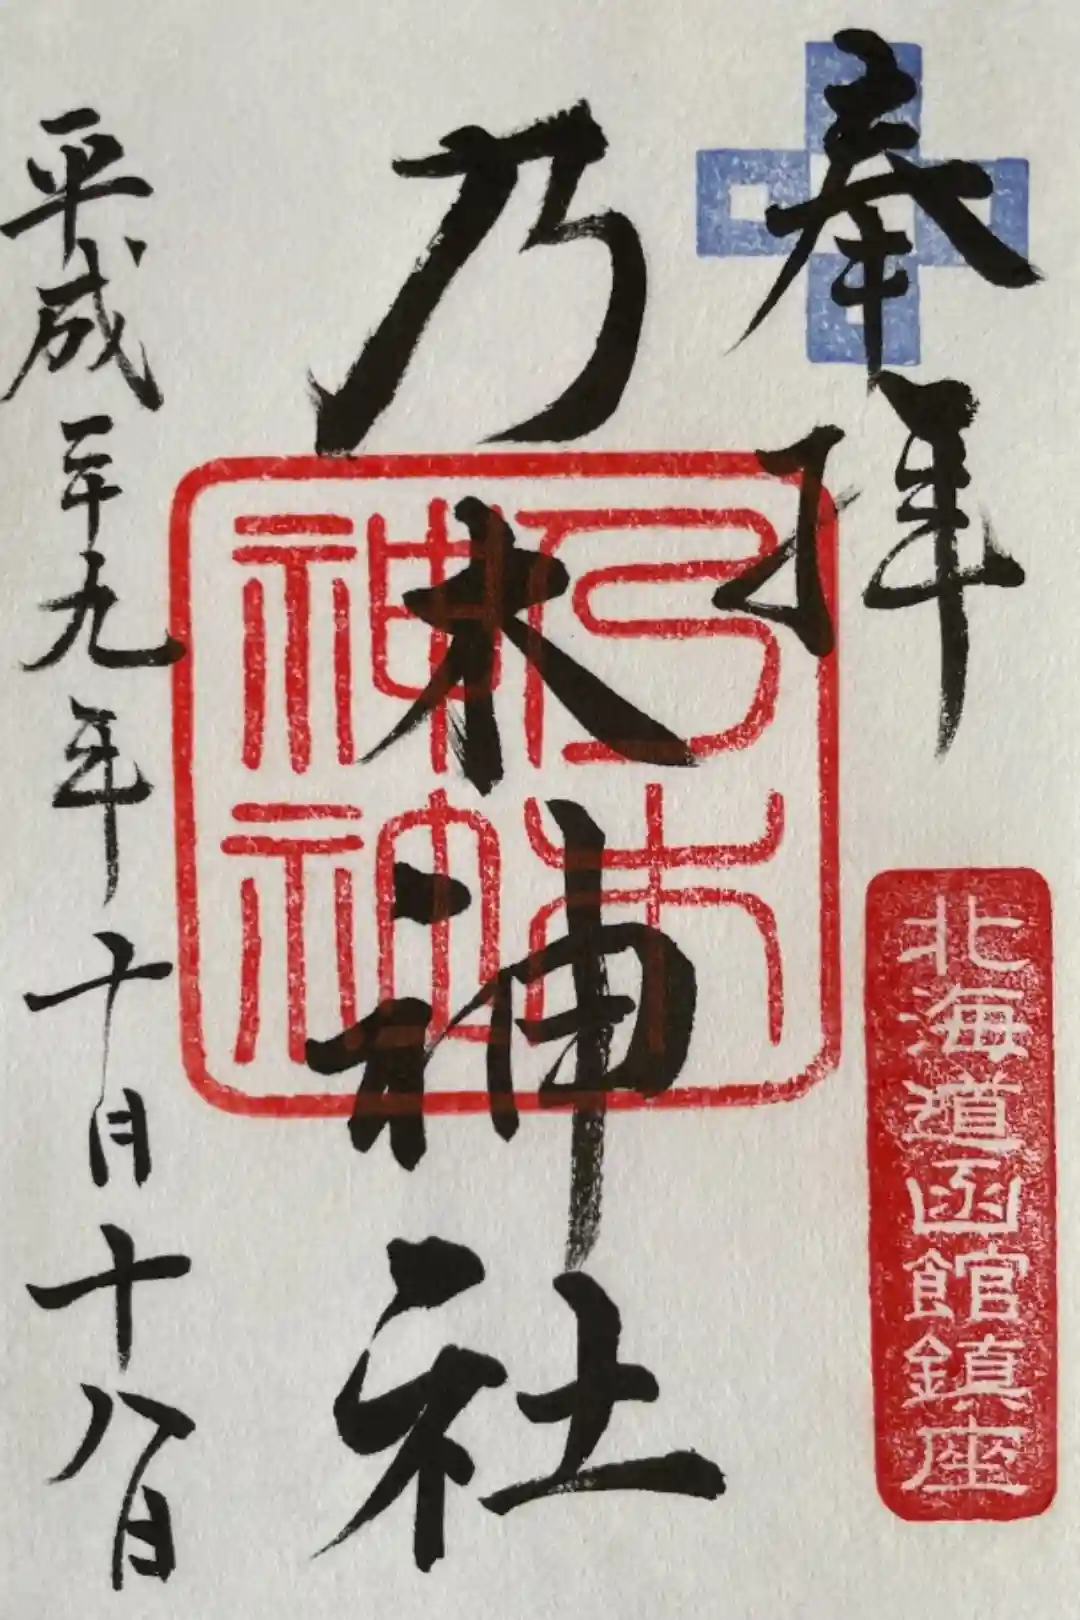 奉拝
北海道函館鎮座
乃木神社
乃木
神社
平成二十九年十月十八日